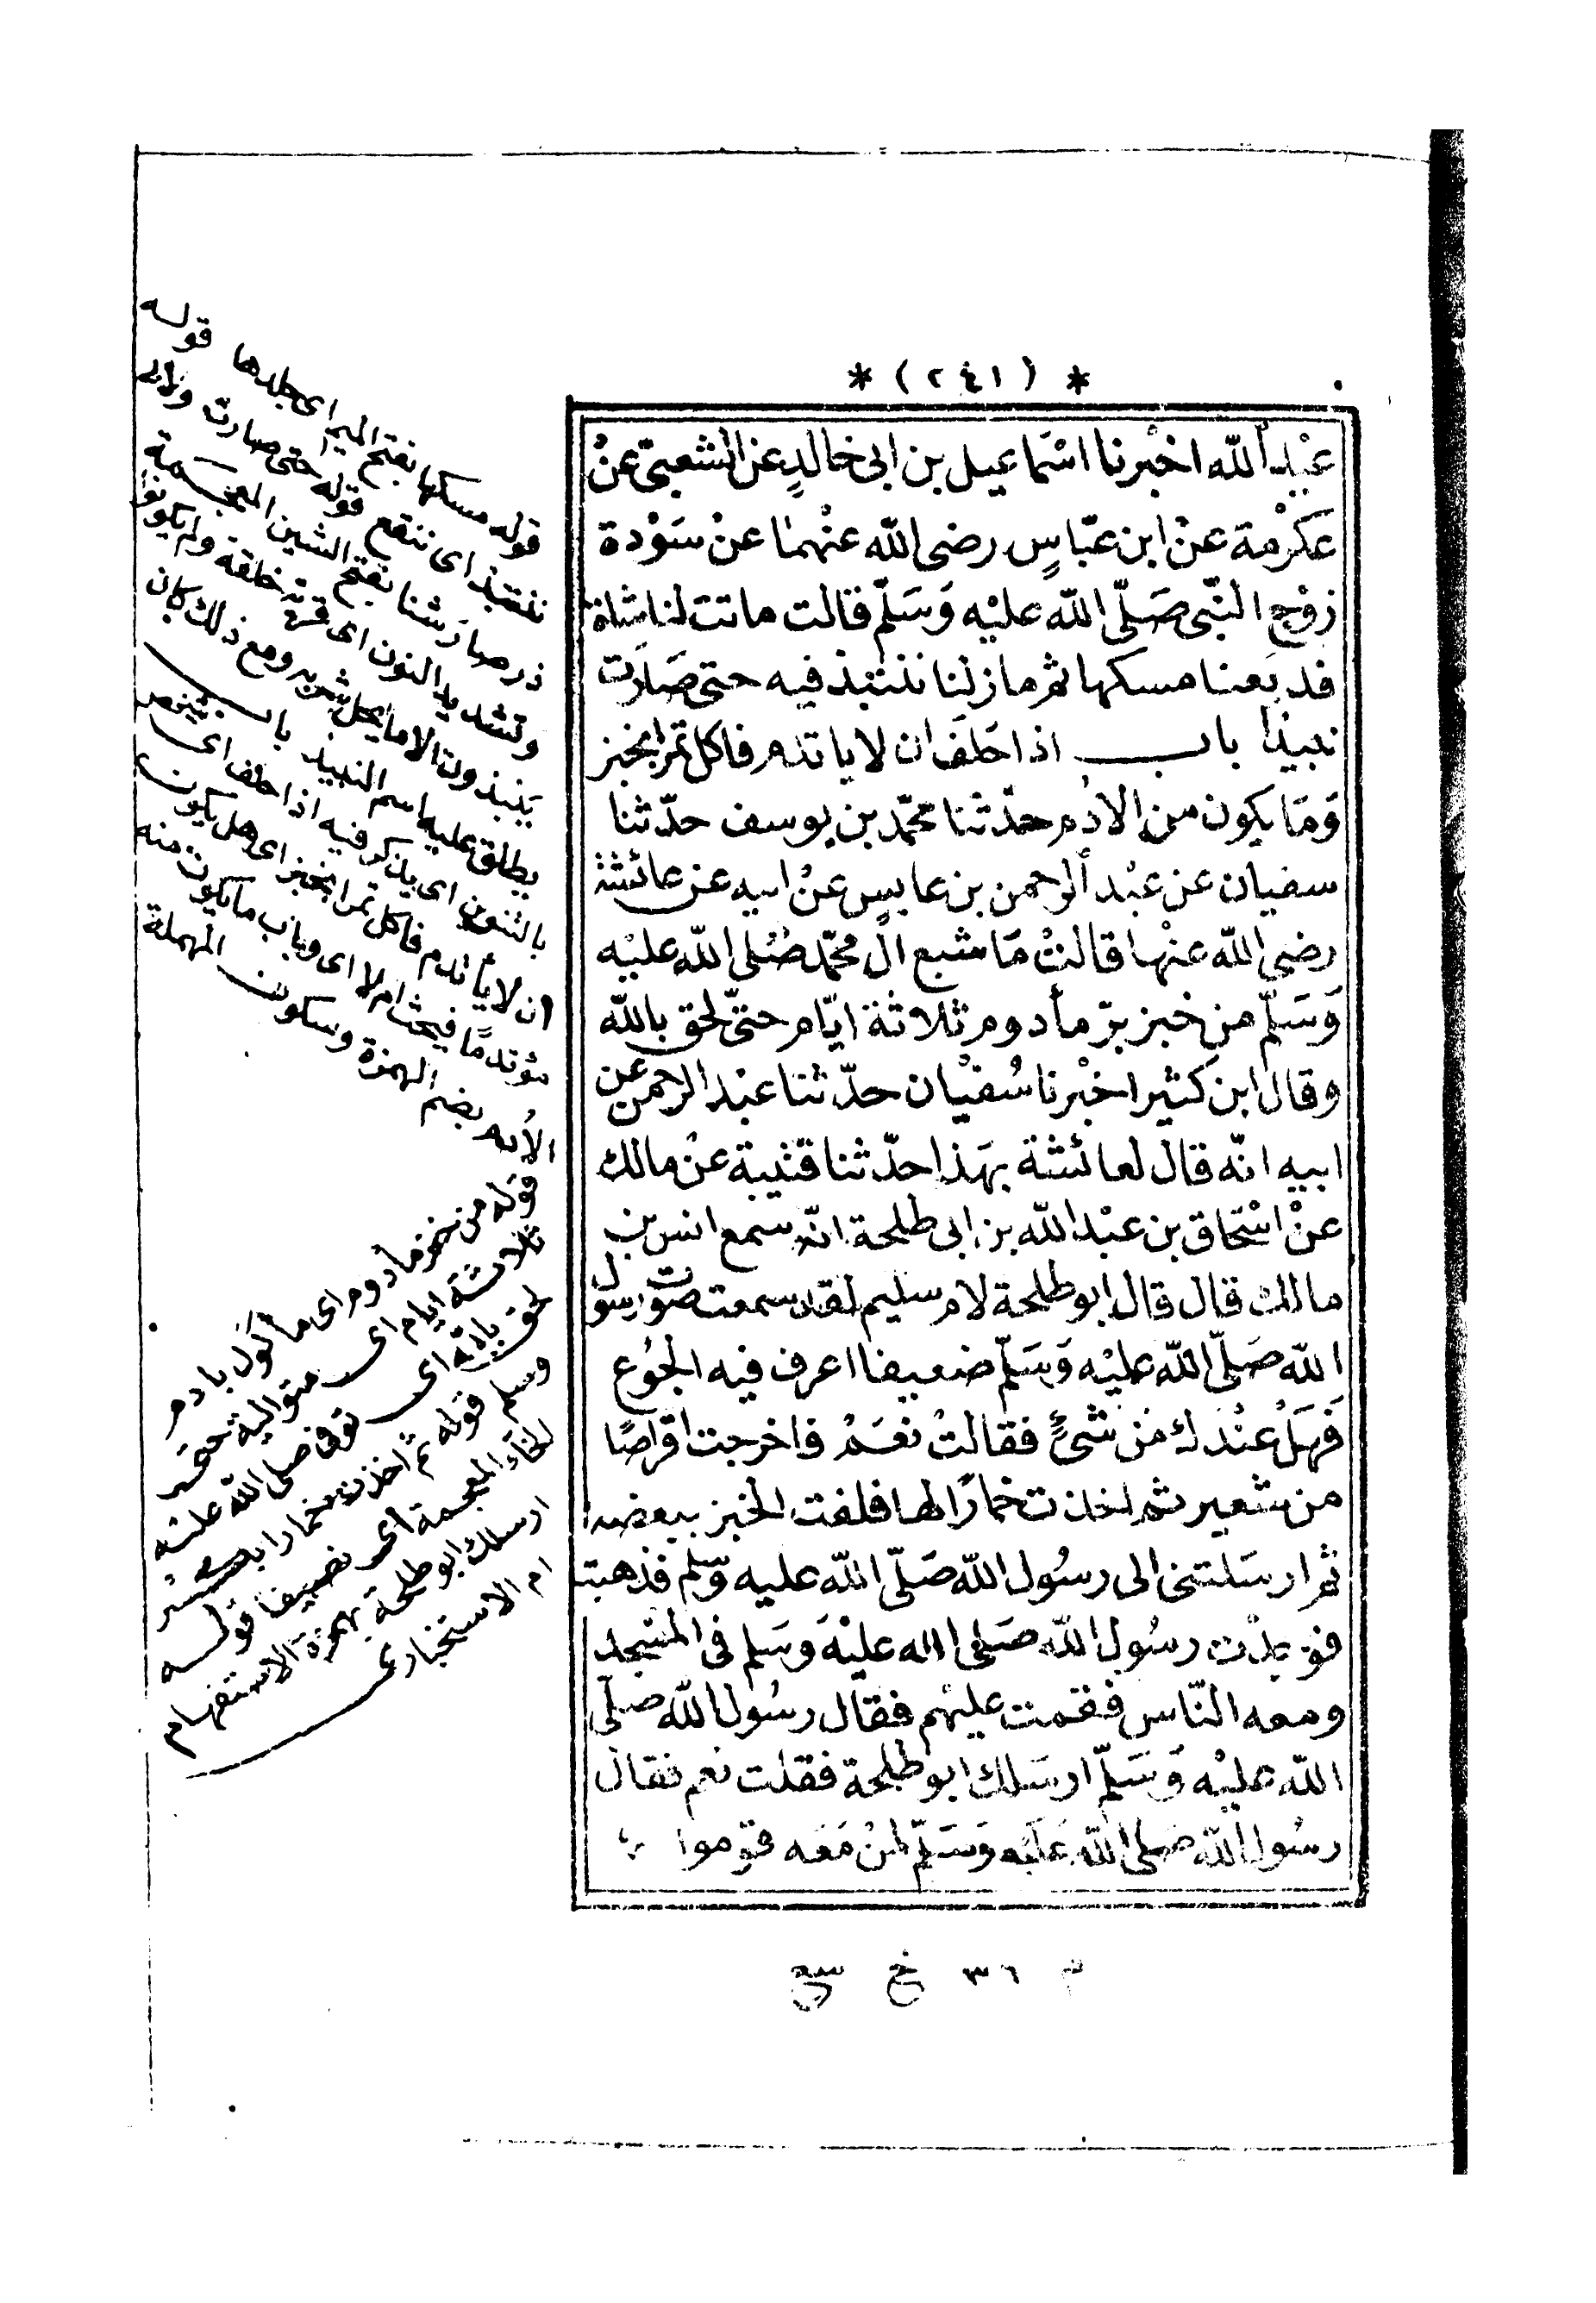 * ( ٢٤١ ) *
عبْد الله اخبْرنا اسْماعيل بن ابى خالدٍ عن الشعبىّ عنْ
عكرْمة عنْ ابن عبّاسٍ رضى الله عنْهما عنْ سَوْدة
زوْج النّبى صَلّى الله عليْه وَسَلّم قالت ماتت لنا شاة
فدبَغنا مسكها ثم ما زلنا ننتبذ فيه حتى صَارَت
نبيذا باب اذا حَلفَ ان لا ياتدم فاكل تمرا بخبز
وَمَا يكون من الادُم حدّثنا محمّد بن يوسف حدّثنا
سفيان عن عبْد الرحمن بن عابسٍ عنْ ابيه عن عائشة
رضى الله عنْها قالتْ مَا شبع آل محمّد صَلى الله عليْه
وَسَلّم من خبز برّ مأدوم ثلاثة ايّام حتىّ لحق بالله
وقال ابن كثير اخبْرنا سُفيْان حدّثنا عبْد الرحمن عن
ابيه انّه قال لعائشة بهَذا حدّثنا قتيبة عنْ مالك
عنْ اسْحاق بن عبْد الله بن ابى طلحة انّه سمع انس بن
مالك قال قال ابو طلحة لام سليم لقد سمعت صَوْت رسول
الله صَلّى الله عليْه وَسَلّم ضعيفا اعرف فيه الجُوع
فَهَلْ عنْدك منْ شئٍ فقالتْ نعَمْ فاخرجت اقراصًا
من شعير ثم اخذت خمارًا لها فلفت الخبز ببعضه
ثم ارسَلتنى الى رسُول الله صَلّى الله عليه وَسلم فذهبت
فوجدْت رسُول الله صَلى الله عليْهَ وسَلم فى المسْجد
ومعه النّاس فقمت عليْهم فقال رسُول الله صلّى
الله عليْه وَسَلّم ارسَلك ابو طلحة فقلت نعم فقال
رسُول الله صَلى الله عَليْه وَسَلّم لمنْ مَعَه قوموا
قوله مسكها بفتح الميم اى جلدها قوله
ننتبذ اى ننقع قوله حتى صارت ولابى
ذر صار شنا بفتح الشين المعجمة
وتشديد النون اى قربة خلقة ولم يكونوا
ينبذون الا ما يحل شربه ومع ذلك كان
يطلق عليه اسم النبيذ باب
بالتنوين اى يذكر فيه اذا حلف اى شخص
ان لا يأتدم فاكل تمرا بخبز اى هل يكون
مؤتدمًا فيحنث ام لا اى وباب ما يكون منه
الأدم بضم الهمزة وسكون المهملة
قوله من خبز مأدوم اى مأكول بادم
ثلاثة ايام اى متوالية حتى
لحق بالله اى توفى صلى الله عليه
وسلم قوله ثم اخذت خمارا بكسر
الخاء المعجمة اى نصيفا قوله
ارسلك ابو طلحة بهمزة الاستفهام
ام الاستخبارى
م ٣٦ خ سع